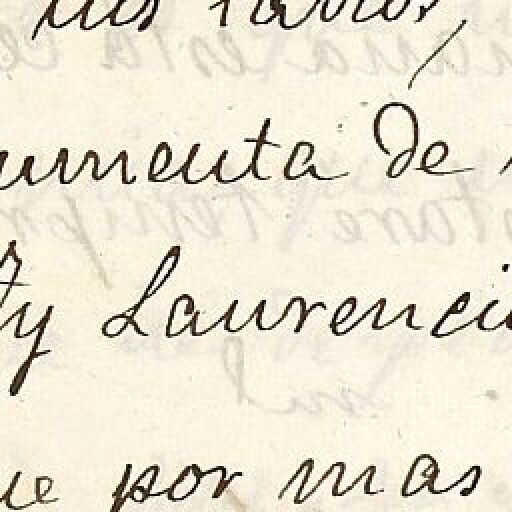 mis labios,
umenta de
y Laurenci
ue por mas